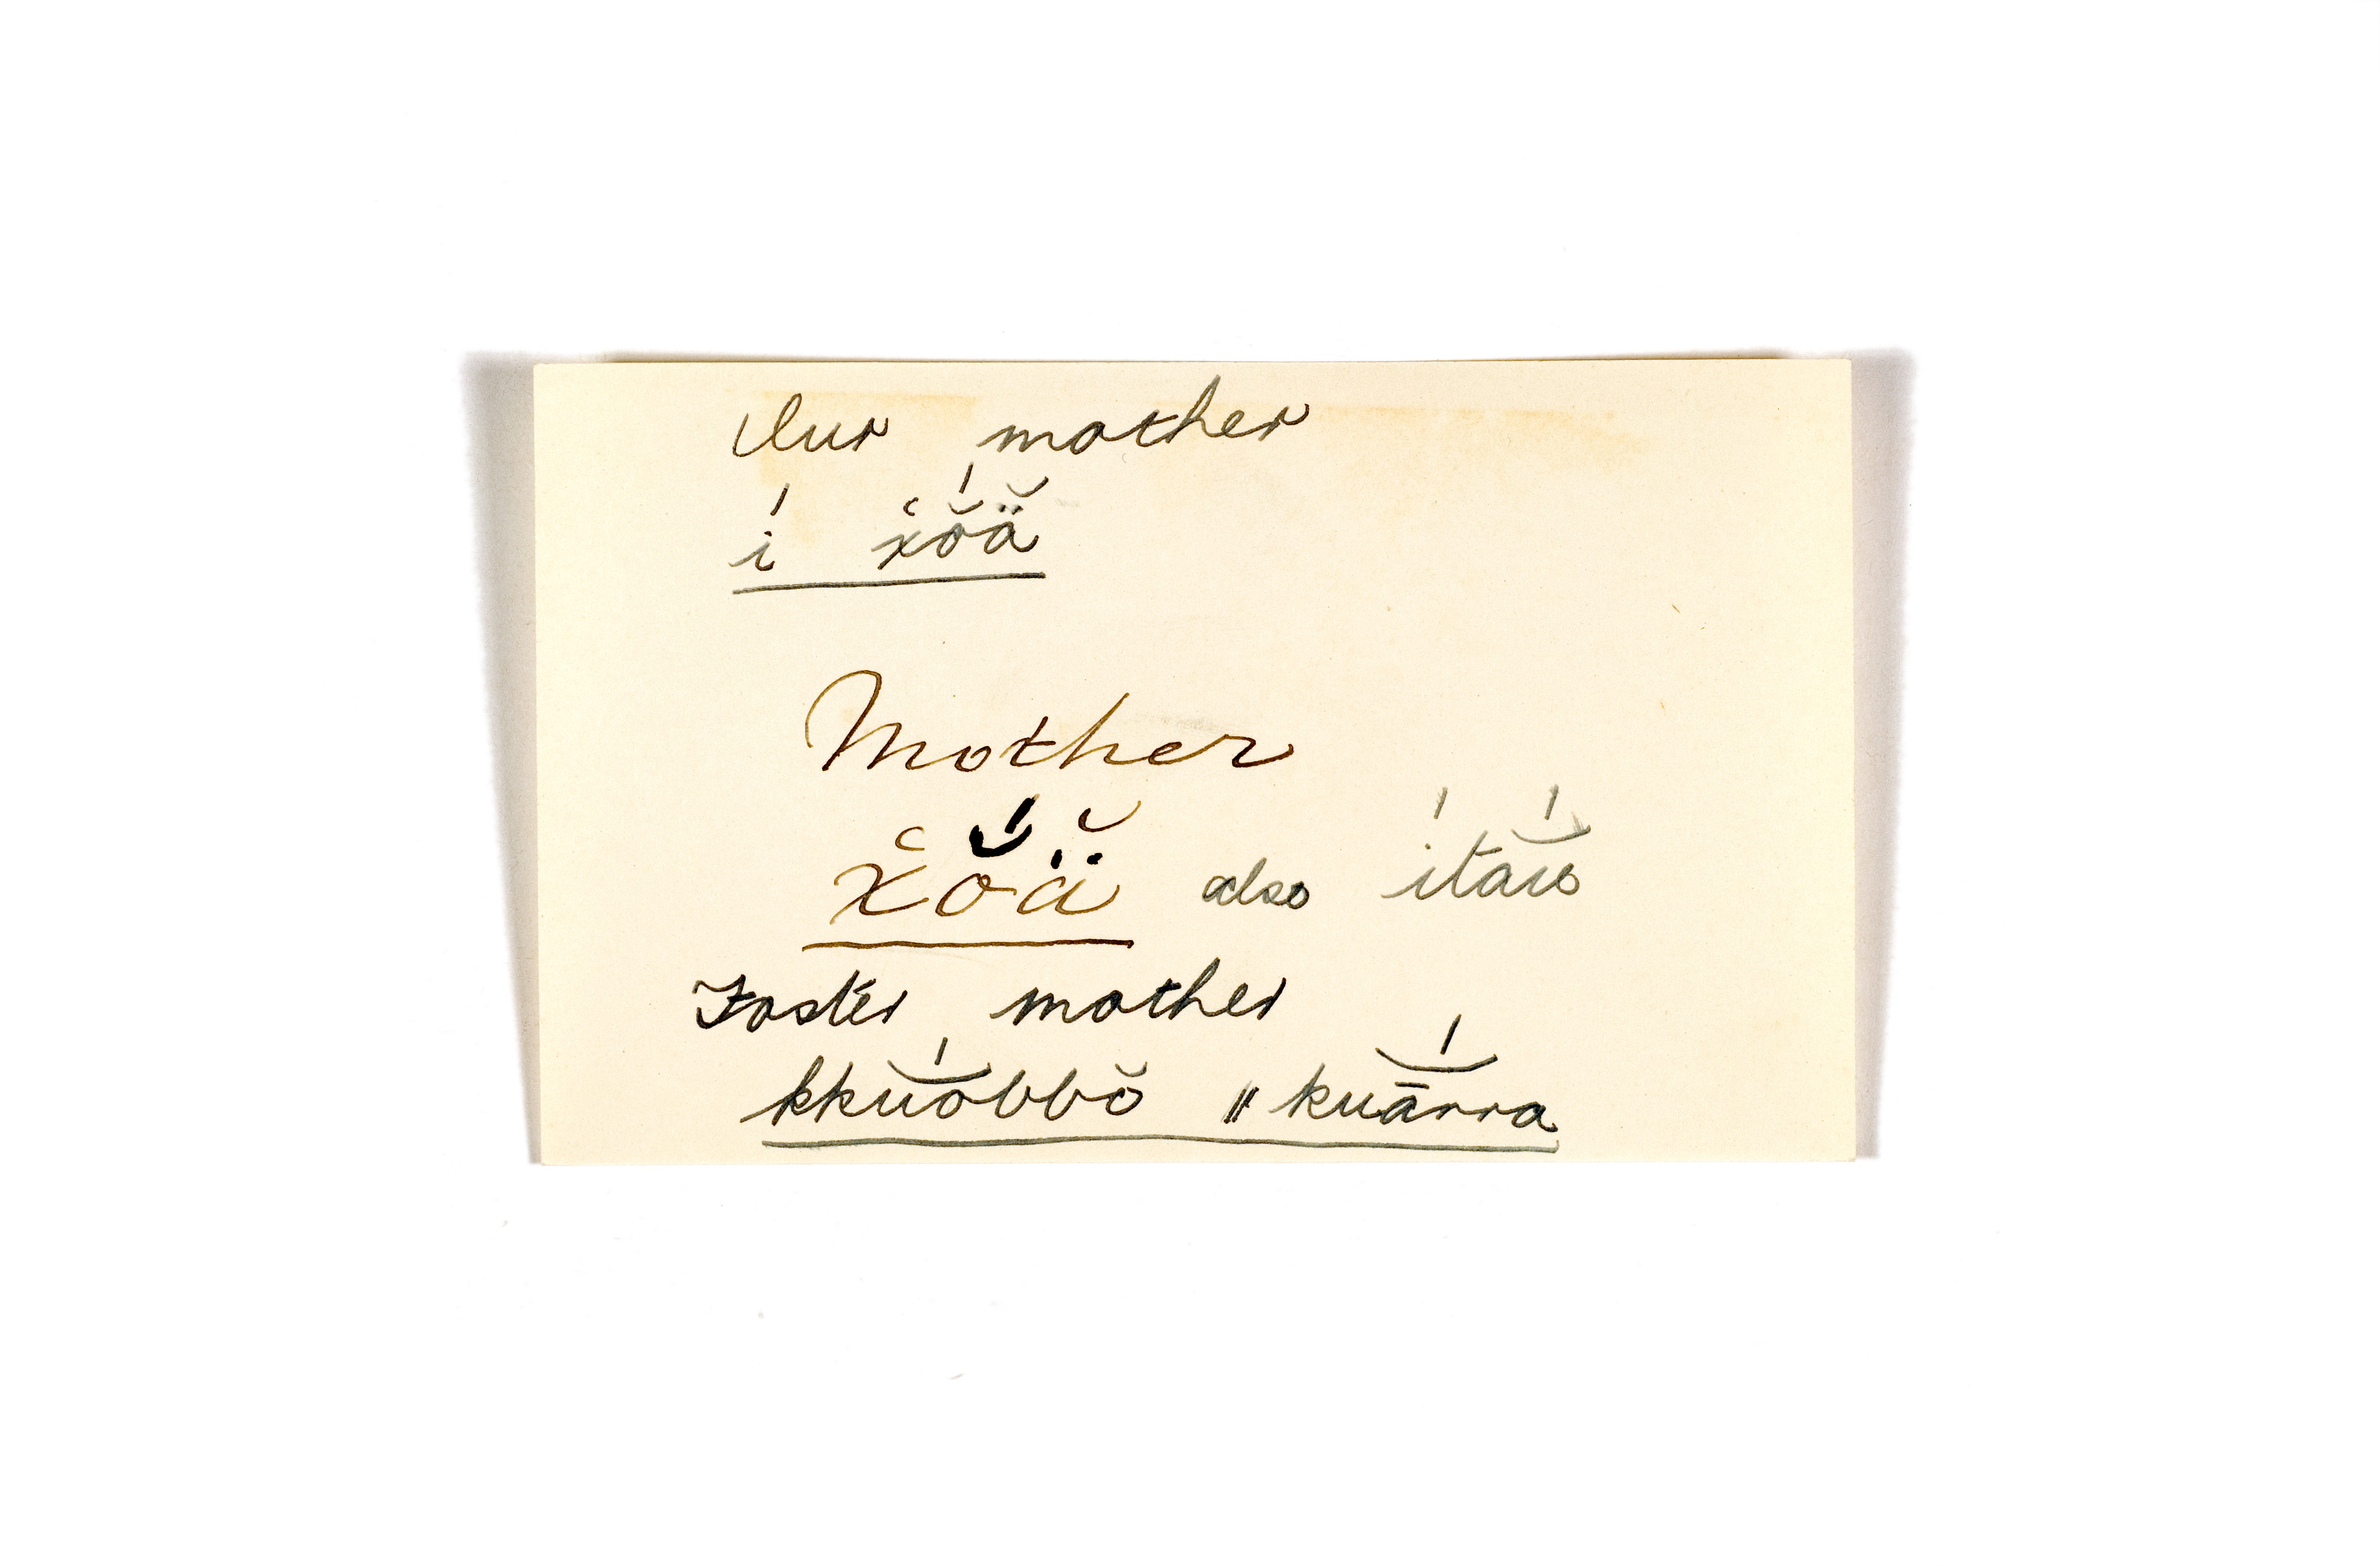 Our mother
í ẋŏ́ä̆
Mother
ẋŏ́ä̆ also ítaıŏ́
Foster mother
kkuŏ́bbŏ " kuā́rra